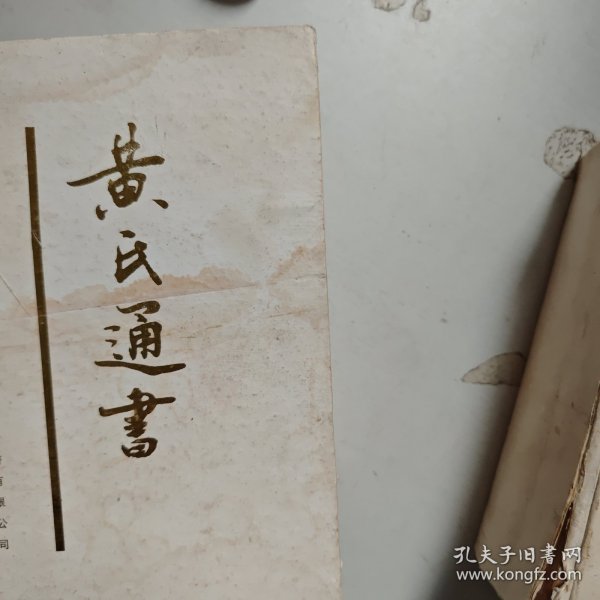 黄氏通書
限公司
孔夫子旧书网
www.kongfz.com